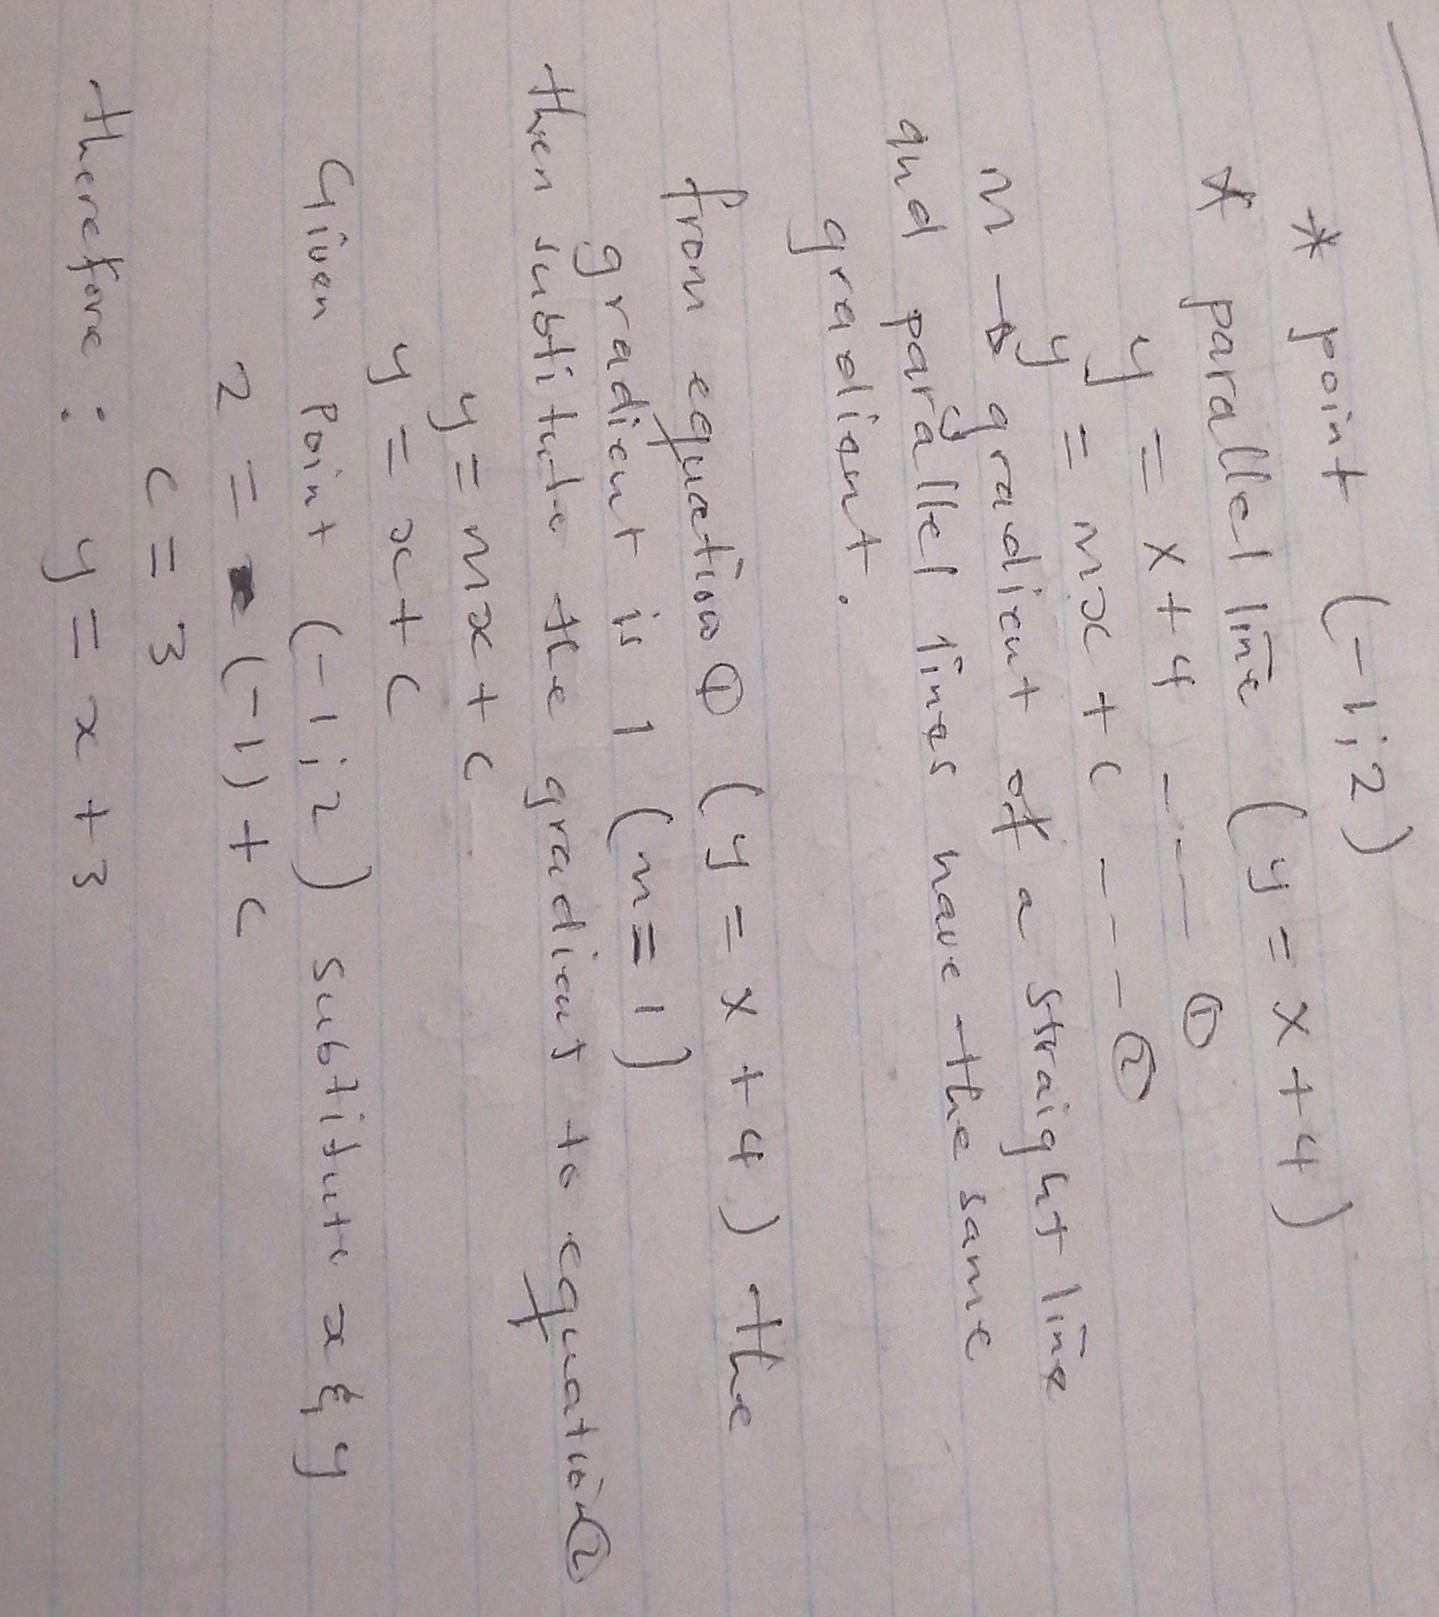 * point (-1;2)
* parallel line (y = x + 4)
y = x + 4 ---- ①
y = mx + c --- ②
m → gradient of a straight line
and parallel lines have the same
gradient.
from equation ① (y = x + 4) the
gradient is 1 (m = 1)
then subtitute the gradient to equation ②
y = mx + c
y = x + c
Given point (-1;2) subtitute x & y
2 = (-1) + c
c = 3
therefore : y = x + 3